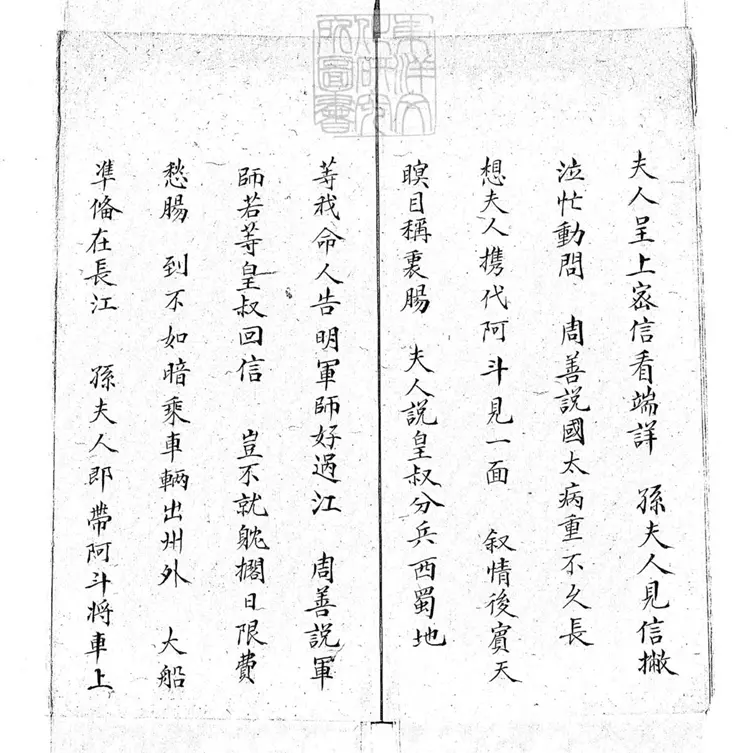 夫人呈上密信看端詳 孫夫人見信撇
泣忙動問 周善説國太病重不久長
想夫人携代阿斗見一面 叙情後賓天
瞑目稱衷腸 夫人説皇叔分兵西蜀地
等我命人告明軍師好過江 周善説軍
師若等皇叔回信 豈不就躭擱日限費
愁腸 到不如暗乘車輛出州外 大船
準俻在長江 孫夫人即帶阿斗將車上
東洋文
化研究
所圖書